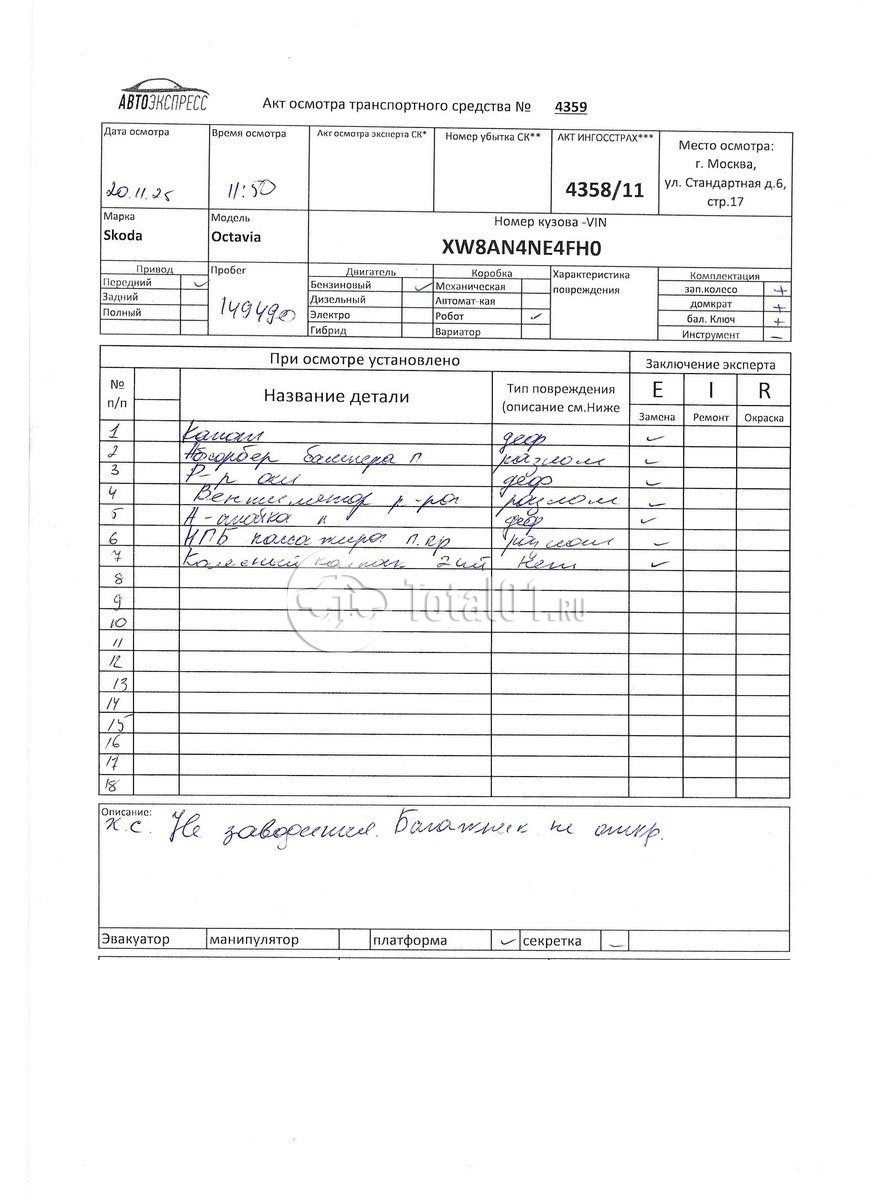 АВТОЭКСПРЕСС
Акт осмотра транспортного средства № 4359
Дата осмотра
20.11.25
Время осмотра
11:50
Акт осмотра эксперта СК*
Номер убытка СК**
АКТ ИНГОССТРАХ***
4358/11
Место осмотра:
г. Москва,
ул. Стандартная д.6,
стр.17
Марка
Skoda
Модель
Octavia
Номер кузова -VIN
XW8AN4NE4FH0
Привод
Передний ✓
Задний
Полный
Пробег
149490
Двигатель
Бензиновый ✓
Дизельный
Электро
Гибрид
Коробка
Механическая
Автомат-кая
Робот ✓
Вариатор
Характеристика
повреждения
Комплектация
зап.колесо +
домкрат +
бал. Ключ +
Инструмент -
При осмотре установлено
Заключение эксперта
№
п/п
Название детали
Тип повреждения
(описание см.Ниже
E I R
Замена Ремонт Окраска
1 Капот деф ✓
2 Абсорбер бампера п разлом ✓
3 Р-р охл деф ✓
4 Вентилятор р-ра разлом ✓
5 А-стойка п деф ✓
6 НПБ пассажира п.пр разлом ✓
7 Колесный колпак 2шт Нет ✓
8
9
10
11
12
13
14
15
16
17
18
Total01.RU
Описание:
х.с. Не заводится. Багажник не откр.
Эвакуатор манипулятор платформа ✓ секретка -